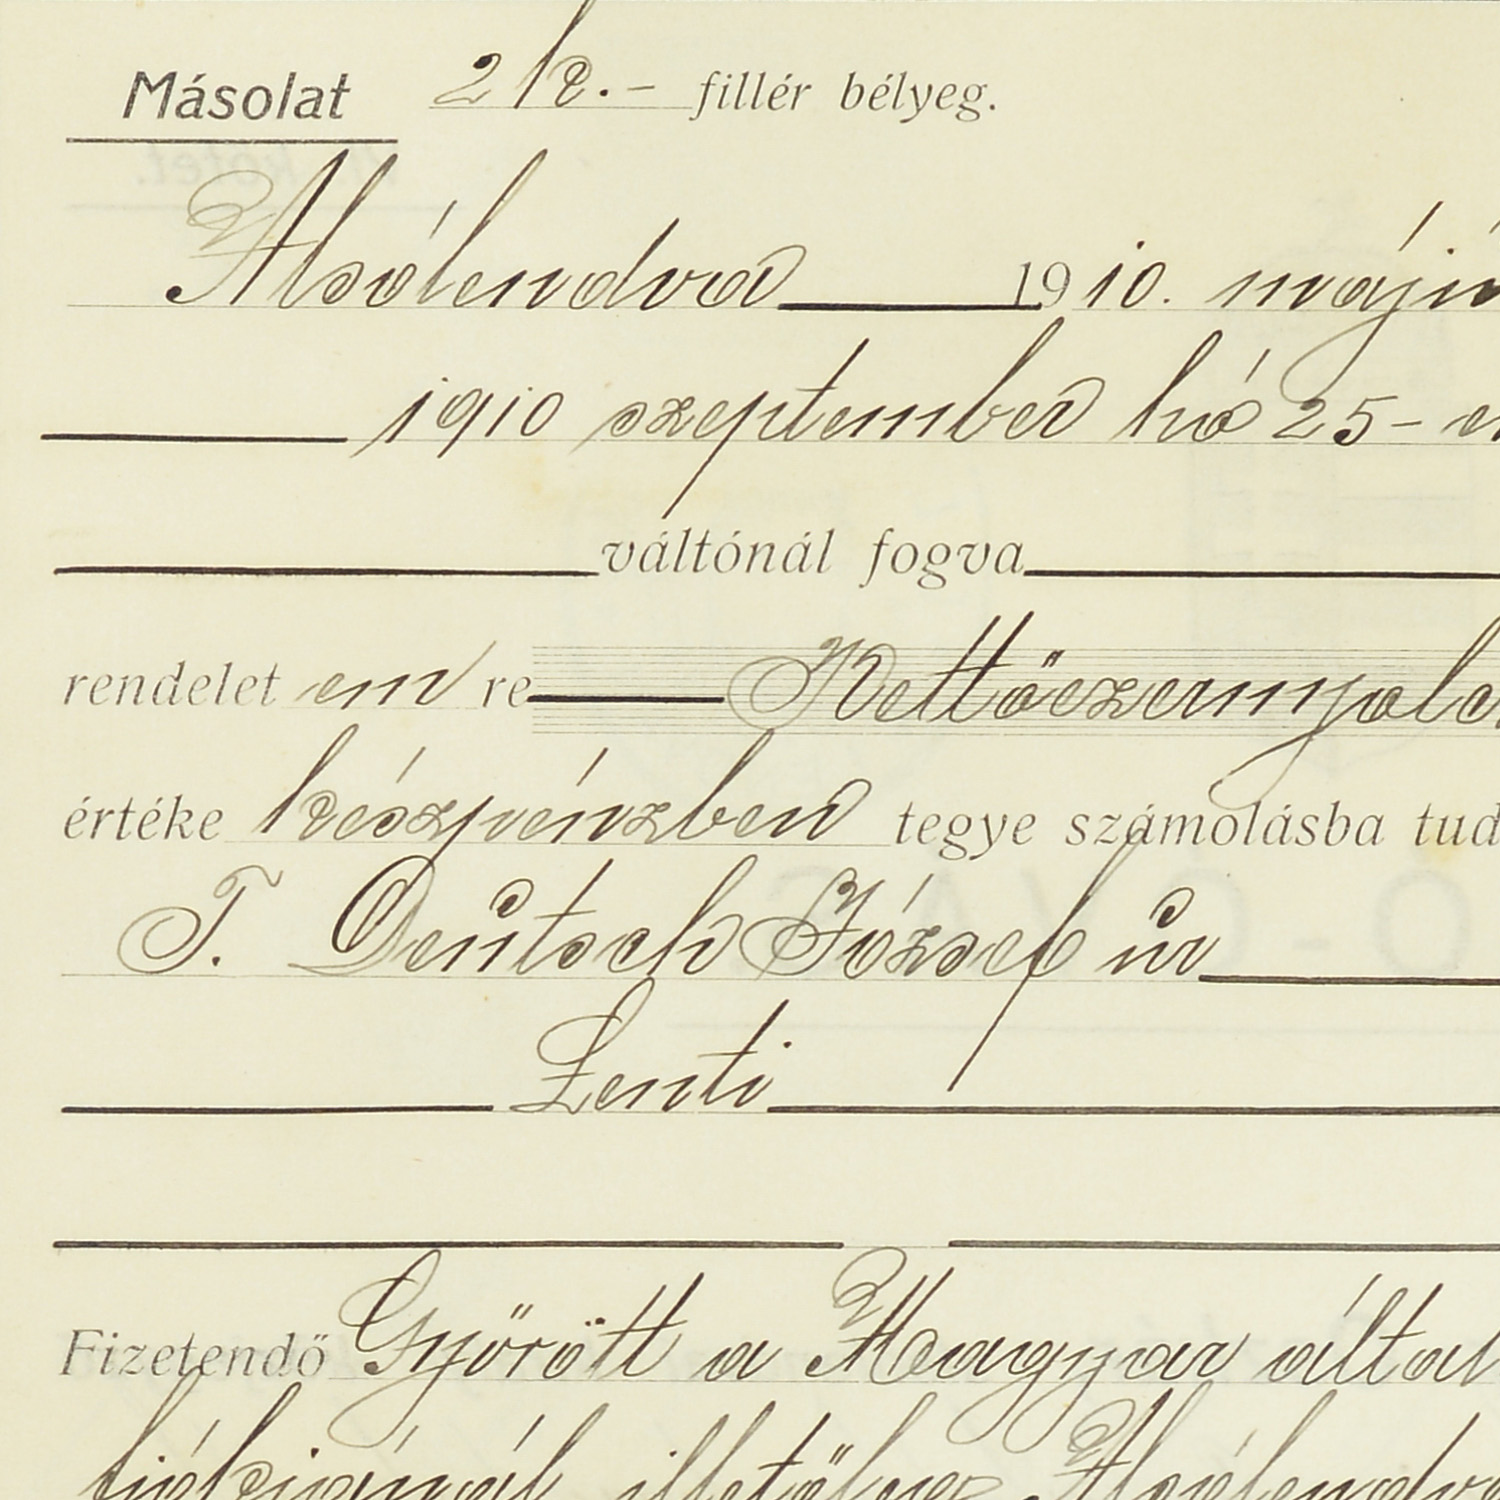 Másolat 2 k.- fillér bélyeg.
Alsólendva 1910. máju
1910 szeptember hó 25-en
váltónál fogva
rendelet em re Kettőezernyolc
értéke készpénzben tegye számolásba tud
T. Deutsch József úr
Lenti
Fizetendő Győrött a Magyar által
fiókjánál illetőleg Alsólendva